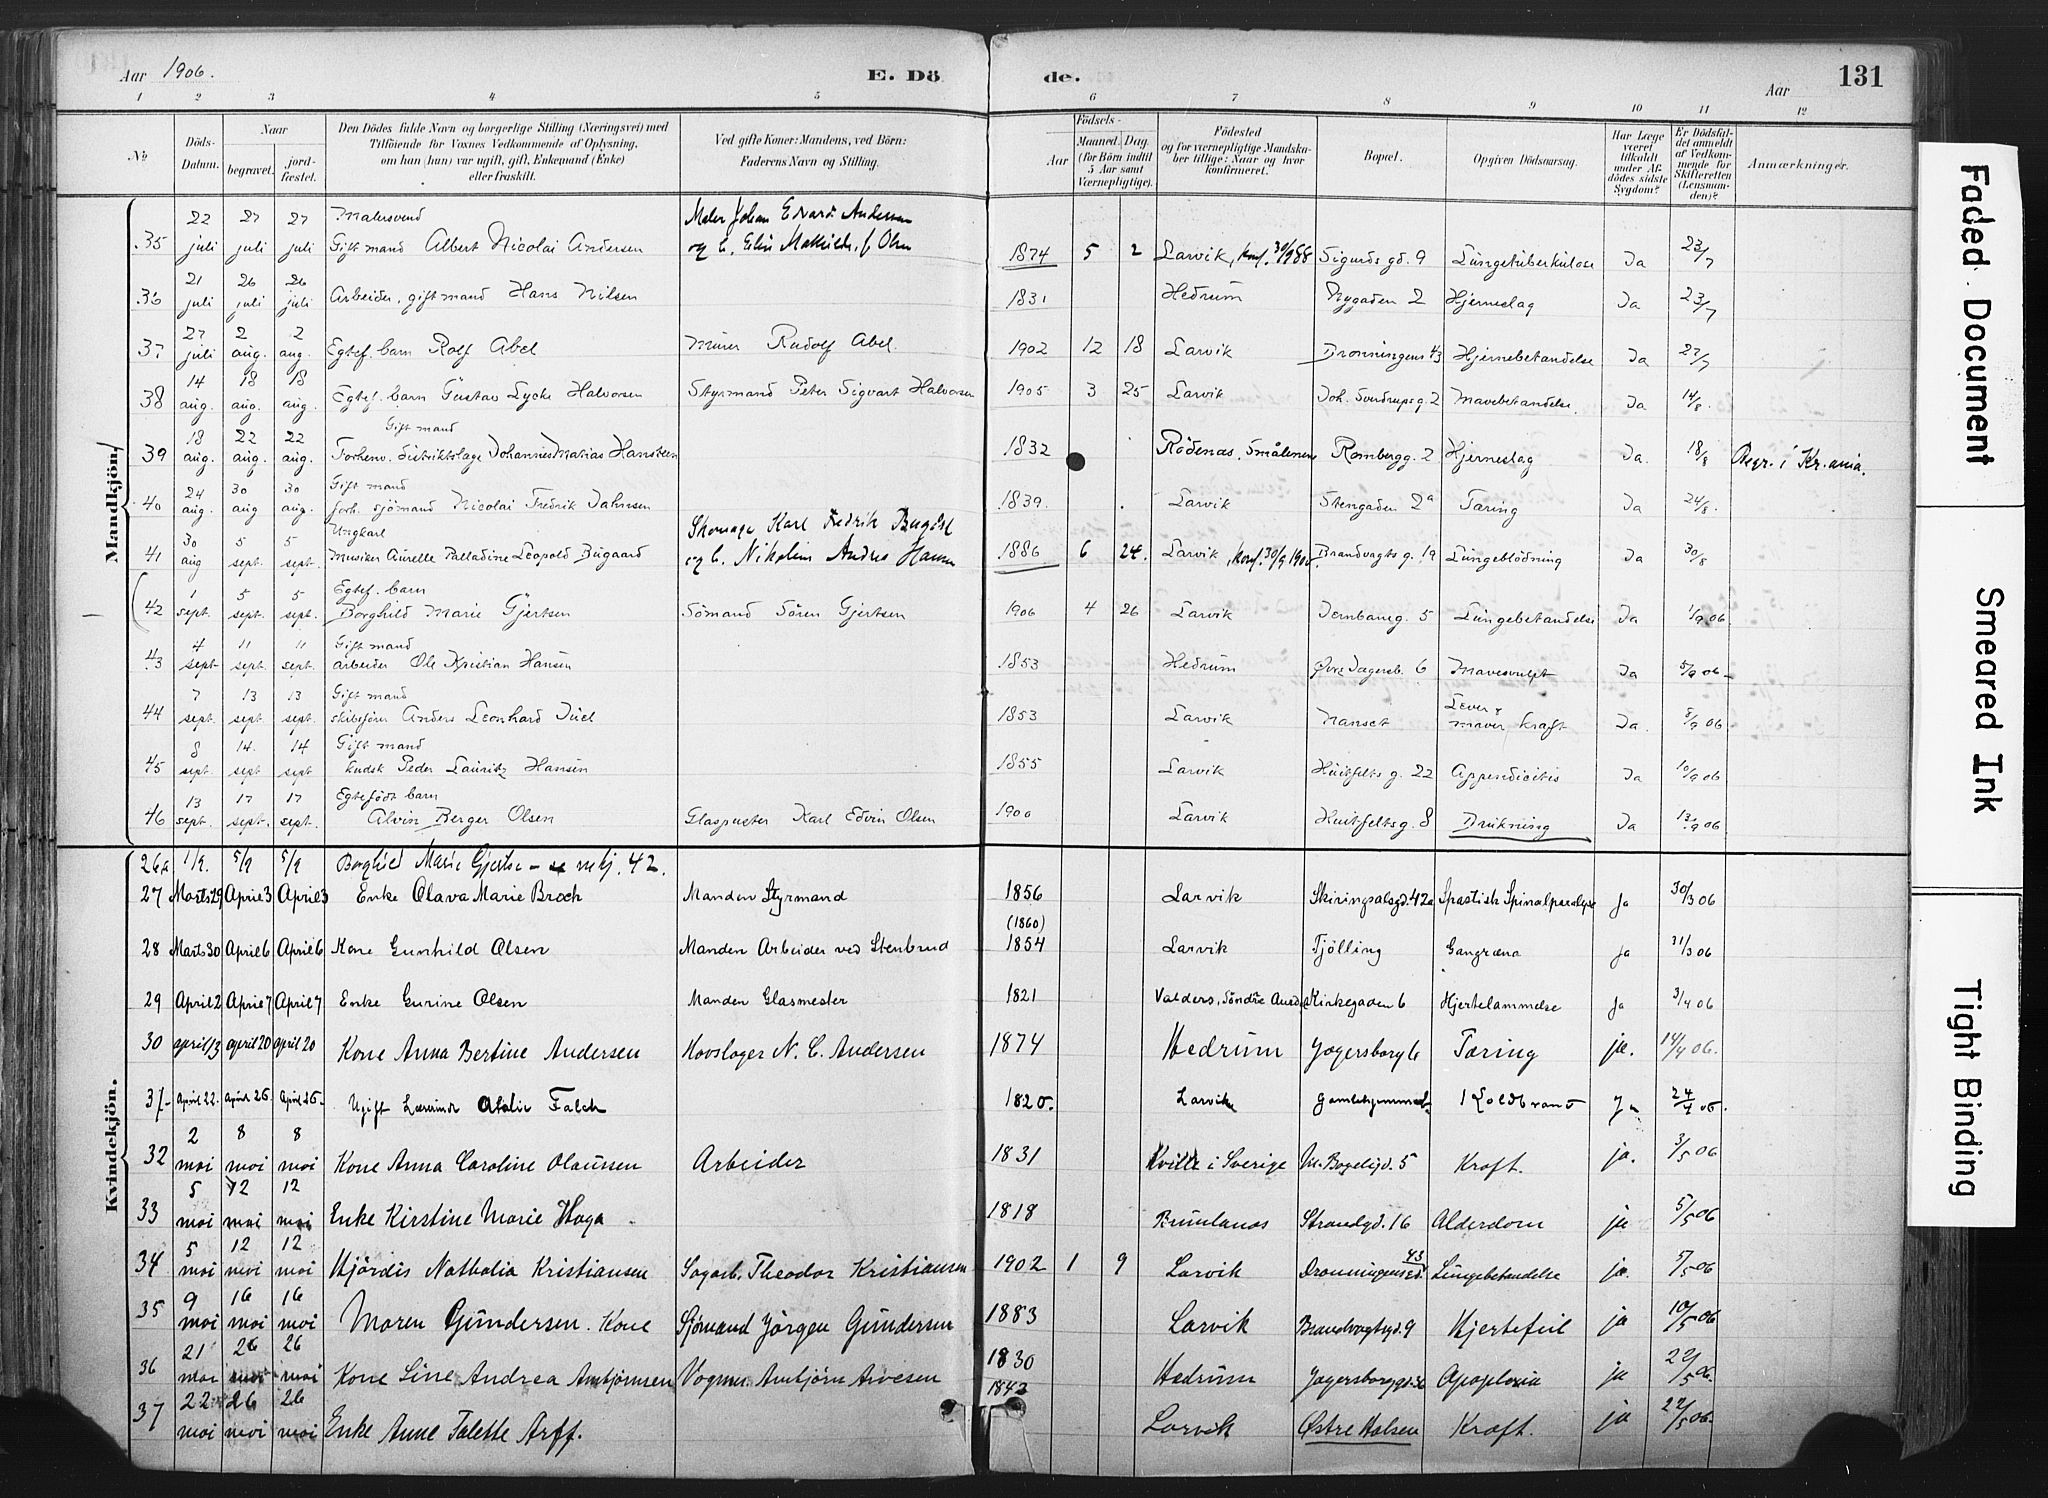 Aar 1906.
E. Dö
de.
Aar
131
1 2 3 4 5 6 7 8 9 10 11 12
No
Döds-Datum.
Naar
begravet.
jord-fæstet.
Den Dödes fulde Navn og borgerlige Stilling (Næringsvei) med
Tilföiende for Voxnes Vedkommende af Oplysning,
om han (hun) var ugift, gift, Enkemand (Enke)
eller fraskilt.
Ved gifte Koner: Mandens, ved Börn:
Faderens Navn og Stilling.
Födsels-
Aar
Maaned. Dag
(for Börn indtil
5 Aar samt
Værnepligtige).
Födested
og for værnepligtige Mandska-
ber tillige: Naar og hvor
konfirmeret.
Bopæl.
Opgiven Dödsaarsag.
Har Læge
været
tilkaldt
under Af-
dödes sidste
Sygdom?
Er Dödsfal-
det anmeldt
af Vedkom-
mende for
Skifteretten
(Lensman-
den)?
Anmærkninger.
Mandkjön.
35 22 juli 27 juli 27 juli Malersvend Gift mand Albert Nicolai Andersen Maler Johan Edvard Andersen og h. Elin Mathilde, f. Olsen 1874 5 2 Larvik, konf. 30/9 88 Sigurds gd. 9 Lungetuberkulose Ja 23/7
36 21 juli 26 juli 26 juli Arbeider, gift mand Hans Nilsen 1831 Hedrum Nygaden 2 Hjerneslag Ja 23/7
37 27 juli 2 aug. 2 aug. Egtef. barn Rolf Abel Murer Rudolf Abel. 1902 12 18 Larvik Dronningens 43 Hjernebetændelse Ja 27/7
38 14 aug. 18 aug. 18 aug. Egtef. barn Gustav Lycke Halvorsen Styrmand Peter Sigvart Halvorsen 1905 3 25 Larvik Joh. Sverdrups g. 2 Mavebetændelse. Ja 14/8.
39 18 aug. 22 aug. 22 aug. Gift mand Forhenv. distriktslæge Johannes Matias Hanssen 1832 Rödenæs, Smålenene Rombergg. 2 Hjerneslag Ja. 18/8 Begr. i Kr.ania.
40 24 aug. 30 aug. 30 aug. Gift mand forh. sjömand Nicolai Fredrik Jahnsen 1839. Larvik Stengaden 2a Tæring Ja 24/8.
41 30 aug 5 sept. 5 sept. Ungkarl Musiker Aurelle Palladine Leopold Bugaard Karl Fredrik og h. Andrea 1886 6 24. Larvik, konf. 30/9 1900. Brandvagts g. 19 Lungeblödning Ja 30/8
42 1 sept. 5 sept. 5 sept. Egtef. barn Borghild Marie Gjertsen Sömand Sören Gjertsen 1906 4 26 Larvik Jernbaneg. 5 Lungebetændelse Ja 1/9 06
43 4 sept. 11 sept. 11 sept. Gift mand arbeider Ole Kristian Hansen 1853 Hedrum Øvre Jagersb. 6 Mavesvulst Ja 5/9 06
44 7 sept. 13 sept. 13 sept. Gift mand skibsförer Anders Leonhard Juel 1853 Larvik Nanset Lever & mavekræft Ja. 8/9 06
45 8 sept. 14. sept 14 sept. Gift mand kudsk Peder Lauritz Hansen 1855 Larvik Huitfelts g. 22 Appendicitis Ja 10/9 06
46 13 sept. 17 sept. 17 sept. Egtefödt barn Alvin Berger Olsen Glaspuster Karl Edvin Olsen 1900 Larvik Huitfeltsg. 8 Drukning Ja 13/9 06
Kvindekjön.
26a 1/9. 5/9 5/9 Borghild Marie Gjertse – se mkj. 42.
27 Marts 29 April 3 April 3 Enke Olava Marie Broch Manden Styrmand 1856 Larvik Skiringsalsgd. 42a Spastisk Spinalparalyse Ja 30/3 06
28 Marts 30 April 6 April 6 Kone Gunhild Olsen Manden Arbeider ved Stenbrud (1860) 1854 Larvik Tjölling Gangræna Ja 31/3 06
29 April 2 April 7 April 7 Enke Gurine Olsen Manden Glasmester 1821 Valders, Söndre Aurdal Kirkegaden 6 Hjertelammelse Ja 3/4 06
30 april 13 april 20 april 20 Kone Anna Bertine Andersen Hovslager N. C. Andersen 1874 Hedrum Jagersborg 6 Tæring ja. 14/4 06.
31- April 22. April 26. April 26- Ugift Lærerinde Atalie Falch 1820. Larvik Gamlehjemmet Koldbrand Ja 24/4 06.
32 2 mai 8 mai 8 mai Kone Anna Caroline Olaussen Arbeider 1831 Kville i Sverige 5 Kræft. ja. 3/5 06
33 5 mai 12 mai 12 mai Enke Kirstine Marie Haga 1818 Brunlanæs Strandgd. 16 Alderdom ja 5/5 06
34 5 mai 12 mai 12 mai Hjördis Nathalia Kristiansen Sagarb. Theodor Kristiansen 1902 1 9 Larvik Dronningens gd. 43 Lungebetændelse ja. 5/5 06
35 9 mai 16 mai 16 mai Maren Gundersen. Kone Sjømand Jørgen Gundersen 1883 Larvik Brandvagtsgd. 9 Hjertefeil ja 10/5 06
36 21 mai 26 mai 26 mai Kone Line Andrea Arnbjörnsen Vognm. Arnbjörn Arvesen 1830 Hedrum Jagersborggd. 36 Apoplexia ja 22/5 06.
37 22 mai 26 mai 26 mai Enke Anne Talette Arff. 1842 Larvik Østre Halsen Kræft. ja 22/5 06.
Faded Document
Smeared Ink
Tight Binding